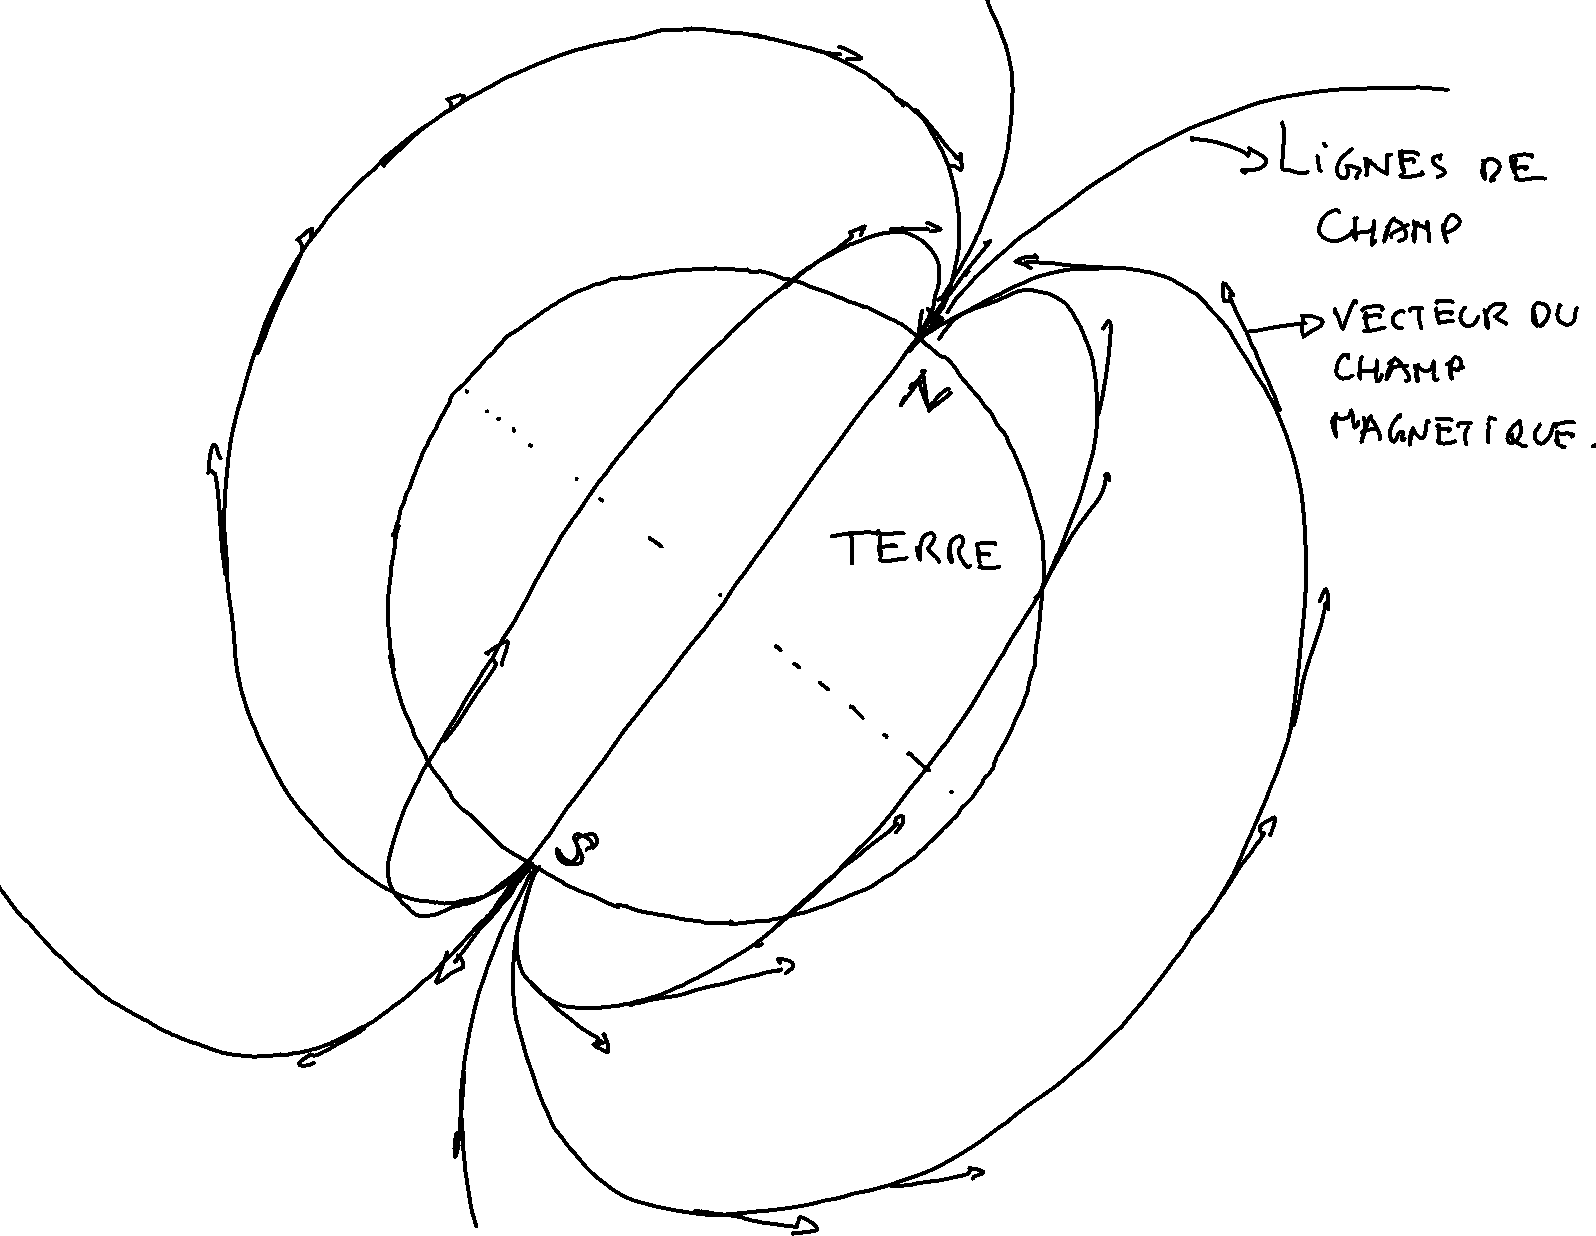 LiGNES DE
CHAMP
VECTEUR DU
CHAMP
MAGNETIQUE.
N
TERRE
S